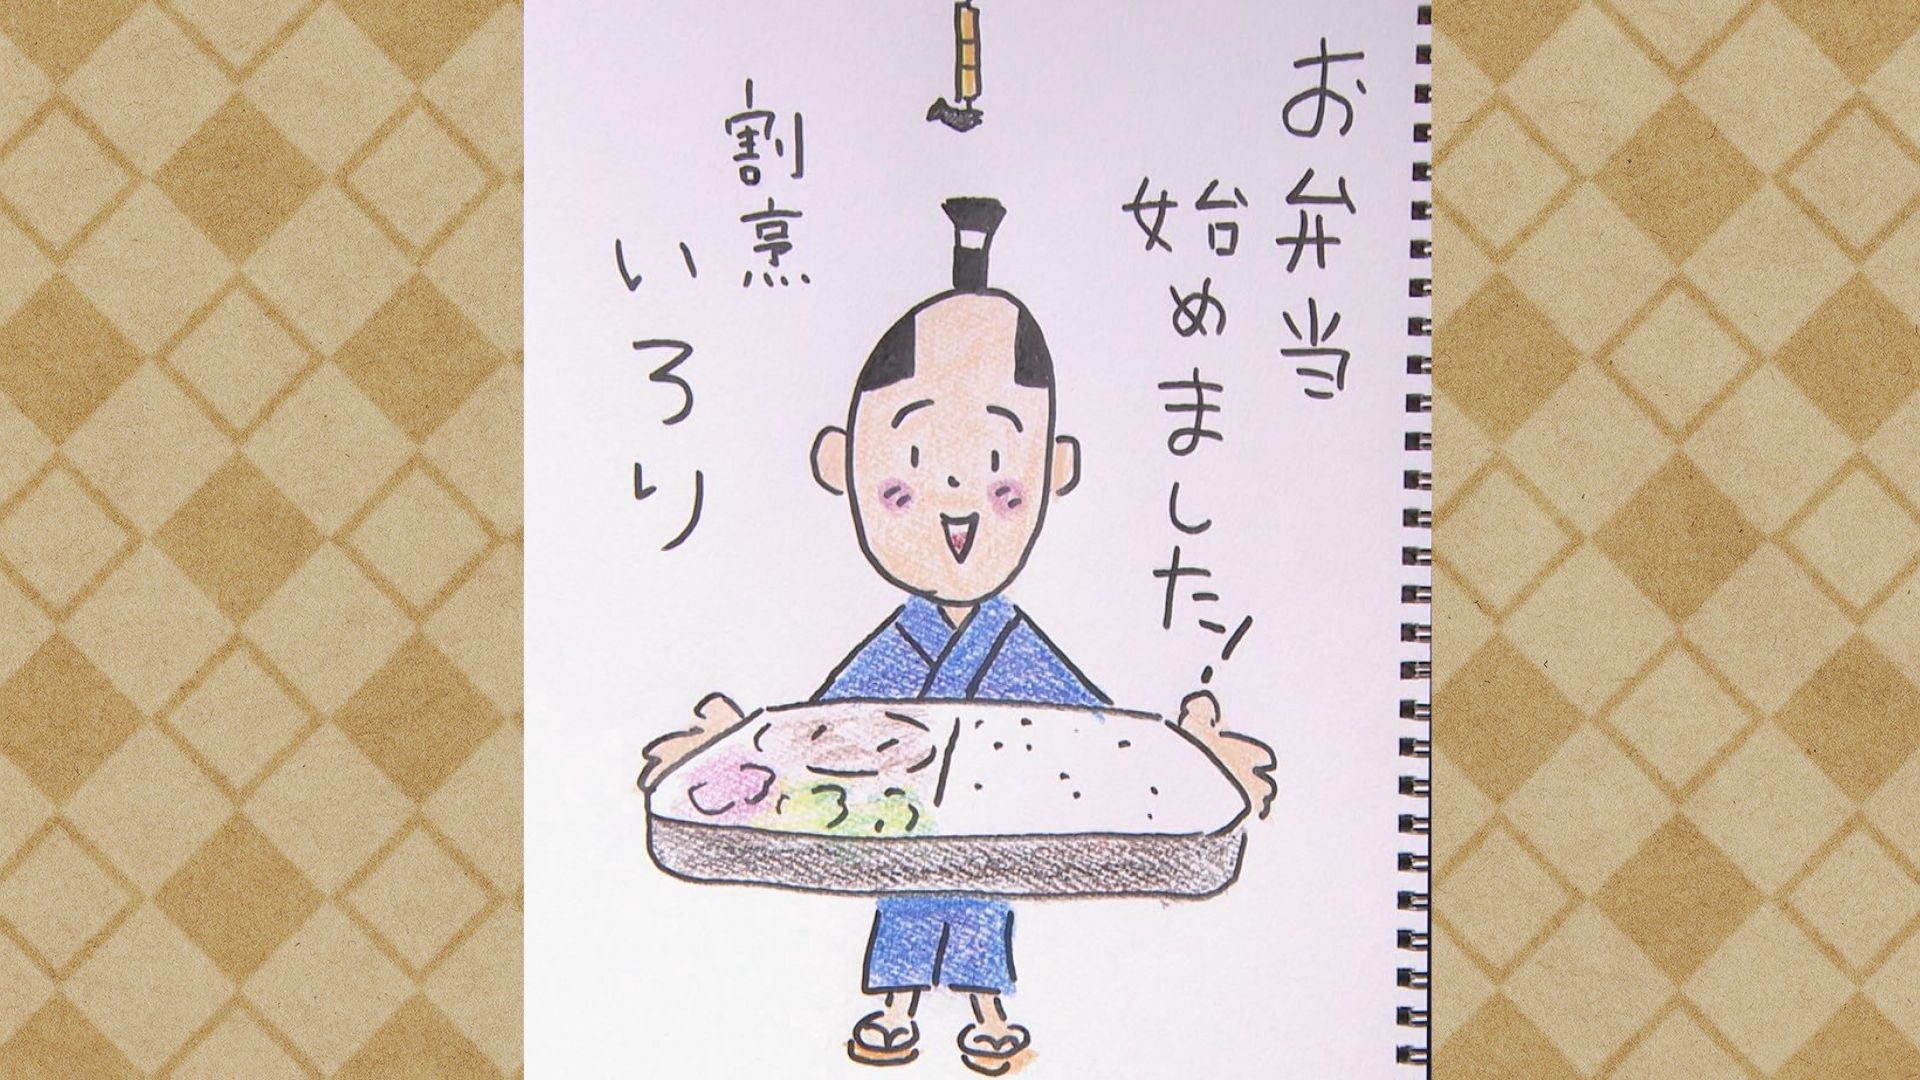 お弁当
始めました!
割烹
いろり